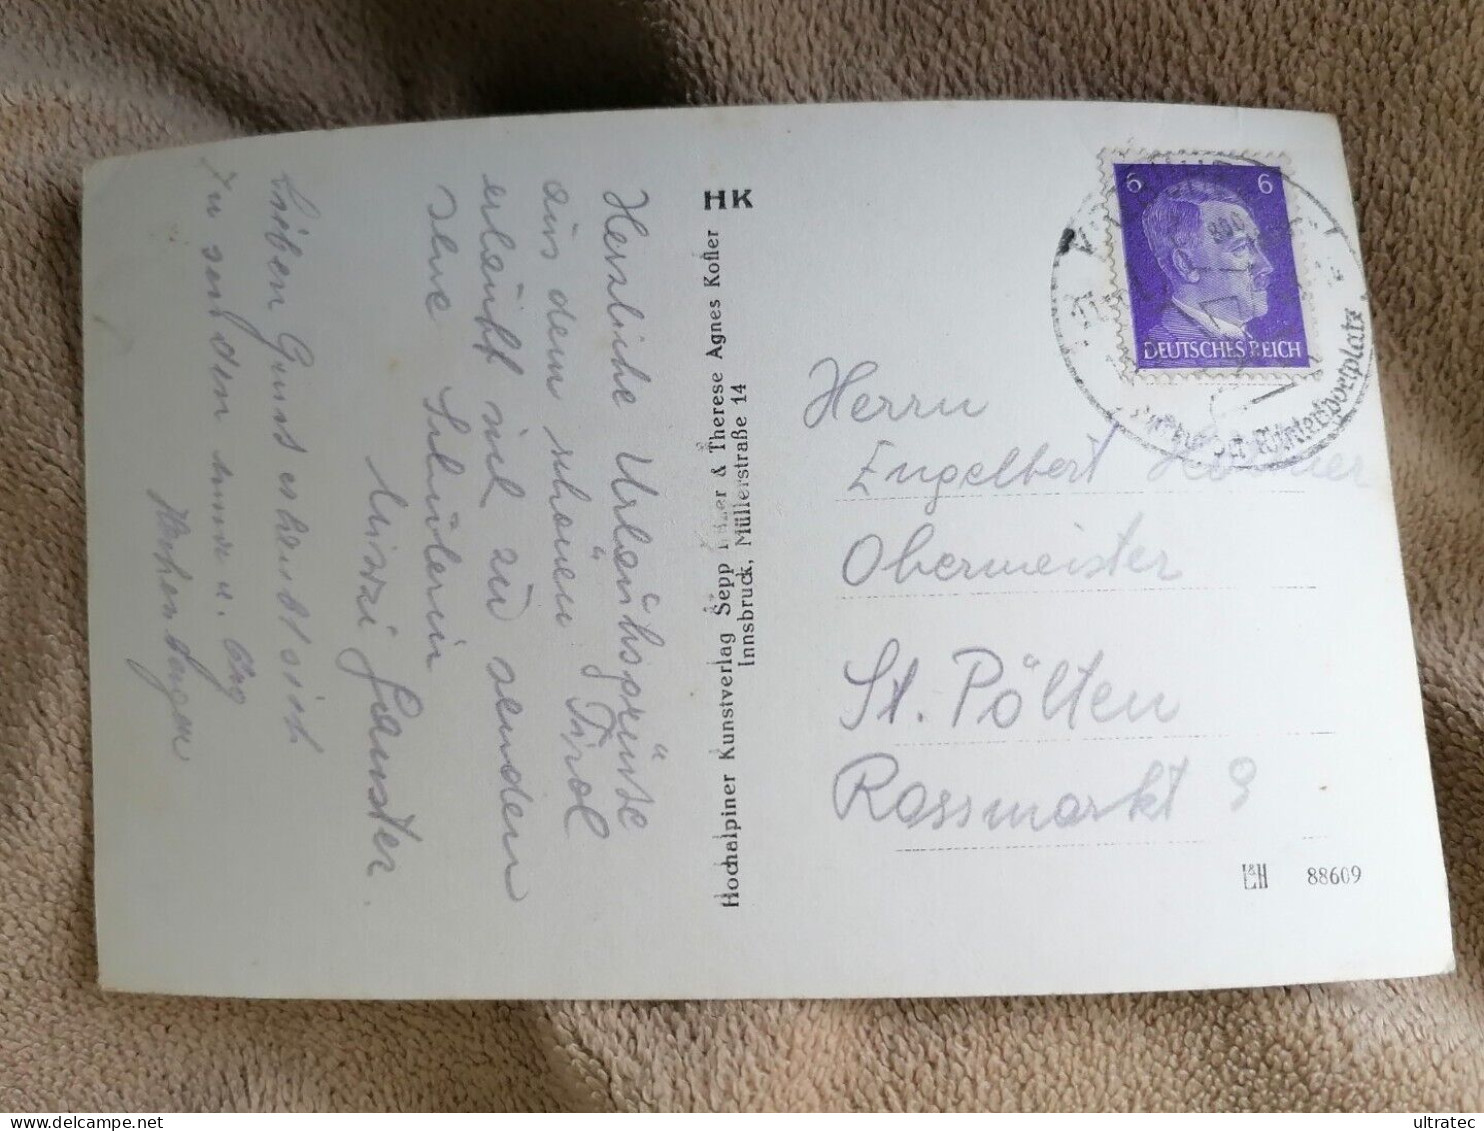 Herzliche Urlaubsgrüße
aus dem schönen Tirol
erlaubt sich zu senden
Ihre Schülerin
Mizzi
Lieben Gruss erlaubt sich
zu senden
HK
Hochalpiner Kunstverlag Sepp & Therese Agnes Kofler
Innsbruck, Müllerstraße 14
6 6
DEUTSCHES REICH
Wintersportplatz
Herrn
Engelbert
Obermeister
St. Pölten
Rossmarkt 9
L&H 88609
ultratec